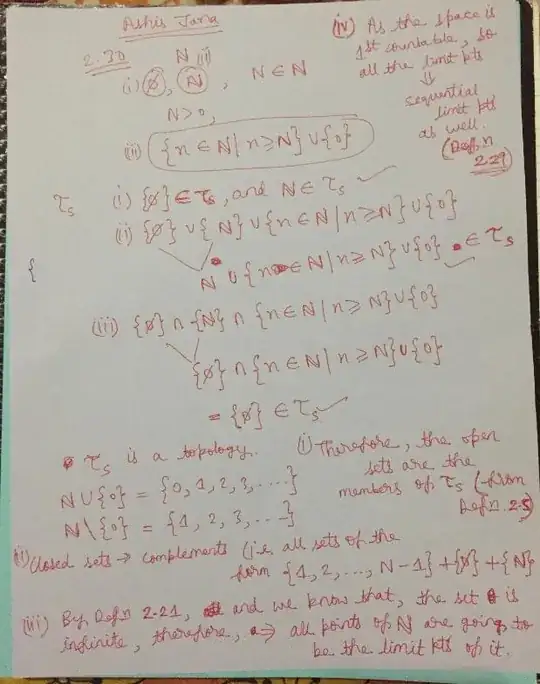 Ashis Jana
2.30 N (ii)
(i) ∅, ℕ, N ∈ ℕ
N > 0,
(ii) {n ∈ ℕ | n ≥ N} ∪ {0}
(iv) As the space is
1st countable, so
all the limit pts
⇓
sequential
limit pts
as well.
(Defn
2.29)
τs (i) {∅} ∈ τs, and ℕ ∈ τs ✓
(ii) {∅} ∪ {ℕ} ∪ {n ∈ ℕ | n ≥ N} ∪ {0}
ℕ ∪ {n ∈ ℕ | n ≥ N} ∪ {0} ∈ τs ✓
{
(iii) {∅} ∩ {ℕ} ∩ {n ∈ ℕ | n ≥ N} ∪ {0}
{∅} ∩ {n ∈ ℕ | n ≥ N} ∪ {0}
= {∅} ∈ τs ✓
τs is a topology.
ℕ ∪ {0} = {0, 1, 2, 3, ....}
ℕ \ {0} = {1, 2, 3, ...}
(i) Therefore, the open
sets are the
members of τs (from
Defn 2.5)
(ii) Closed sets → complements (i.e. all sets of the
form {1, 2, ..., N-1} + {∅} + {ℕ}
(iii) By Defn 2.21, and we know that, the set is
infinite, therefore, ⇒ all points of ℕ are going to
be the limit pts of it.